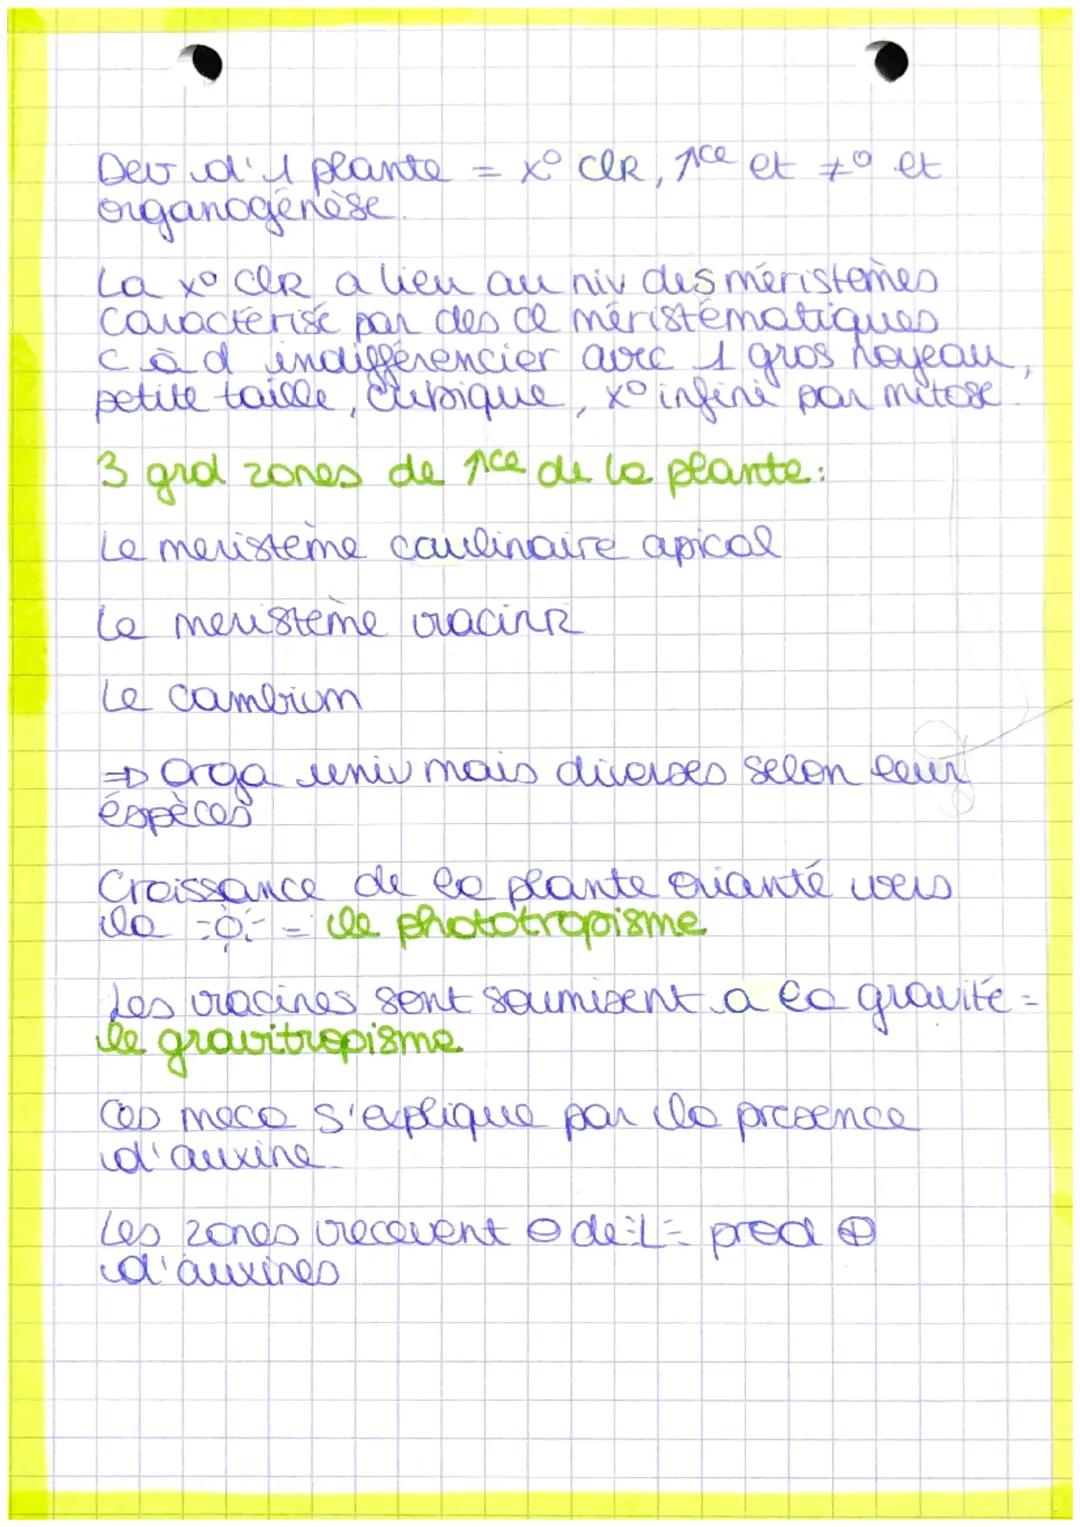 Dev d'1 plante = x° clR, ↑ce et ≠° et
organogénèse.
La x° clR a lieu au niv des méristèmes
caractérisé par des cl méristématiques
c à d indifférencier avec 1 gros noyeau,
petite taille, cubique, x° infini par mitose.
3 grd zones de ↑ce de la plante :
Le meristème caulinaire apical
Le meristème racinR
Le cambium
⇒ Orga univ mais diverses selon leur
éspèces
Croissance de la plante orianté vers
la = le phototropisme
Les racines sont soumisent a la gravité =
le gravitropisme
Ces meca s'explique par la presence
d'auxine.
Les zones recevent ⊖ de L = prod ⊕
d'auxines